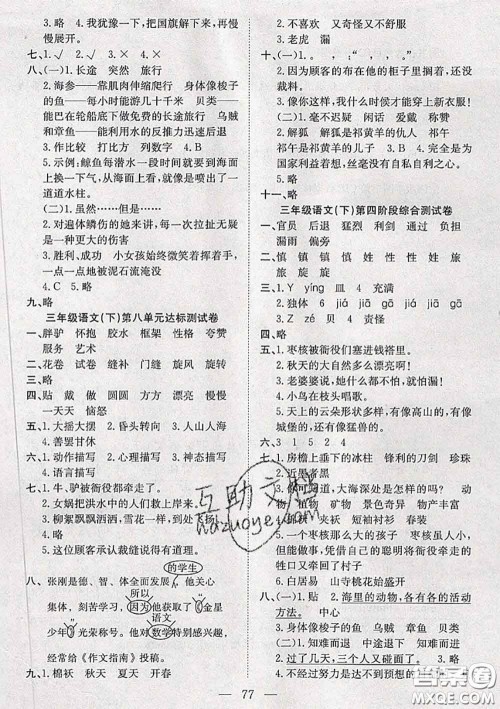 3.略　4.我犹豫一下，把国旗解下来，再慢慢展开。
七、1.√　2.√
八、(一)1.长途　突然　旅行
2.海参——靠肌肉伸缩爬行　身体像梭子
的鱼——每小时能游几十千米　贝类——
能巴在轮船底下做免费的长途旅行
乌贼和章鱼——能利用水的反推力迅速后退
3.作比较　打比方　列数字　4.B
5.示例：鲸鱼每潜水一段时间就要浮
上海面换气，从海面上看，便形成了一道
道水柱。
(二)1.虽然……但是……
2.对遍体鳞伤的她来说，每一次拉扯无疑是
一种更大的伤害
3.胜利、成功　小女孩始终微笑着挥着手，
一点一点地被泥石流冲走
4.C　5.略
九、略
三年级语文(下)第八单元达标测试卷
一、胖驴　怀抱　胶水　框架　性格　夸赞
服务　艺术
二、花卷　试卷　缝补　门缝　旋风　旋转
三、略
四、贴　戴　做　圆圆　方方　漂亮　慢慢
一天天　恼怒
五、1.大摇大摆　2.昏头昏脑　3.人山人海
4.善罢甘休
六、1.动作描写　2.心理描写　3.神态描写
4.语言描写
七、1.牛、驴被衙役们牵走了。
2.女娲把洪水中的人们救上岸来。
3.柳絮飘飘洒洒，雪花一样，到处飞扬。
4.略
5.这位顾客承认裁缝说得有道理。
的学生
八、张刚是德、智、体全面发展，他关心
所以
集体，刻苦学习，因为他获取了金星
语文
少年光荣称号。他对数学特别感兴趣，
经常给《作文指南》投稿。
九、1.棉袄　秋天　夏天　开春
2.不喜欢　又奇怪又不舒服
3.老虎　漏
十、(一)1.，　。　：“　，　？”
2.因为顾客的布在他的柜子里搁着，还没
裁料。
3.像你这样，我什么时候才能穿上新衣服!
(二)1.毫不迟疑　闲聊　近戚　称赞
2.解狐　解狐是祁黄羊的仇人　祁午
祁午是祁黄羊的儿子　4.完全是出于为
国家利益着想，丝毫没有自私自利之心。
十一、略
三年级语文(下)第四阶段综合测试卷
一、官员　后退　猛烈　利剑　贴墙　负担
漏雨　偏旁
二、慎　镇　填　慎　姓　性　胜　旅
旅　旋
三、1.Y　yíng　皿　4　充满
2.独体　6　jiá　jiā　gā　jiā　jiá　gā
3.Z　zé　贝　4
四、略
五、1.枣核被衙役们塞进钱褡里。
2.秋天的大自然多么漂亮啊!
3.老婆婆说，她就怕漏!
4.小鸟在枝头唱歌。
5.天上的云朵形状多样，有时像房屋，有时像
城堡，有时像棉花，有时像大象……
六、3　1　5　2　4
七、1.房檐上垂下的冰柱　锋利的刀剑　珍珠
2.近墨者黑
3.你可知道，大海深处是怎样的吗?　动
物　植物　矿物　景色奇异　物产丰富
4.夹袄　短袖衬衫　春装
5.一个枣核那么大的孩子，不但勤快，还
很聪明，凭借自己的聪明将衙役牵走的牲口牵回了
村子
6.白居易　山寺桃花始盛开
八、(一)1.略　2.海里的动物，各有各的活动
方法。　中心
3.身体像梭子的鱼　乌贼和章鱼　贝类
(二)1.知难而退　中途退下　知难而进
2.过了几天，三个人又碰面了。　3.略
4.不经过努力是永远也达不到预想的目标的
77
互助文档
huzuoye.com
答案圈
MXQE.COM